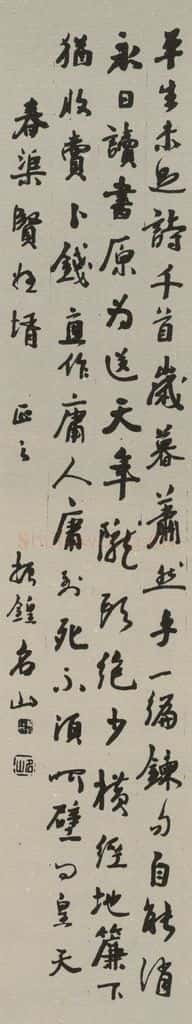 平生未足詩千首歲暮蕭然手一編鍊句自能消
永日讀書原為送天年隴頭絕少橫經地簾下
猶收賣卜錢直作庸人庸到死不須呵壁問皇天
春渠賢姪壻 正之 振鍾名山